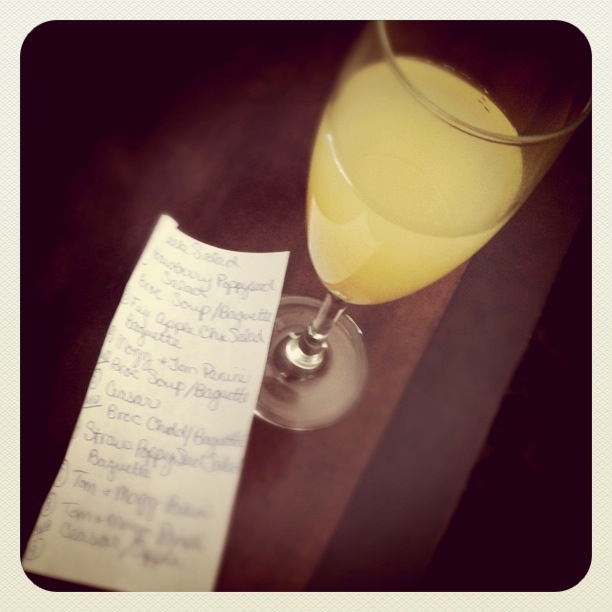 Salad
Poppyseed
Salad
Broc Soup/Baguette
Fuji Apple Chx Salad
Baguette
Mozz + Tom Panini
Broc Soup/Baguette
Ceasar
Broc Chedd/Baguette
Straw PoppySeed Salad
Baguette
Tom + Mozz Panini
Tom + Mozz Panini
Ceasar/Apple